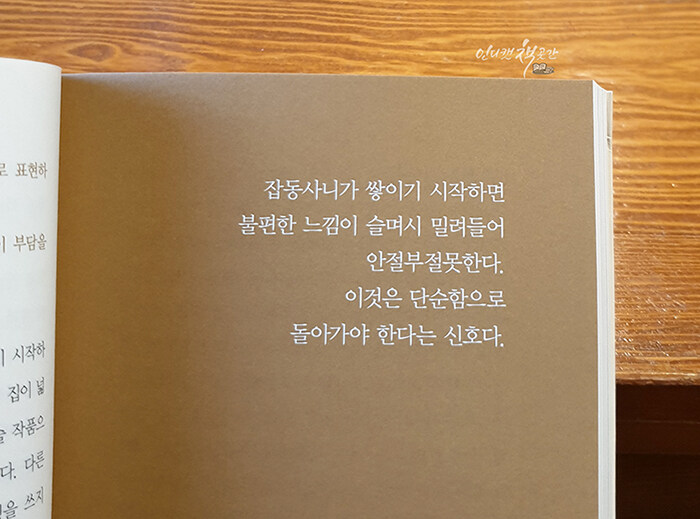 인디캣책곳간
로 표현하
이 부담을
시작하
집이 넓
술 작품으
다. 다른
을 쓰지
잡동사니가 쌓이기 시작하면
불편한 느낌이 슬며시 밀려들어
안절부절못한다.
이것은 단순함으로
돌아가야 한다는 신호다.